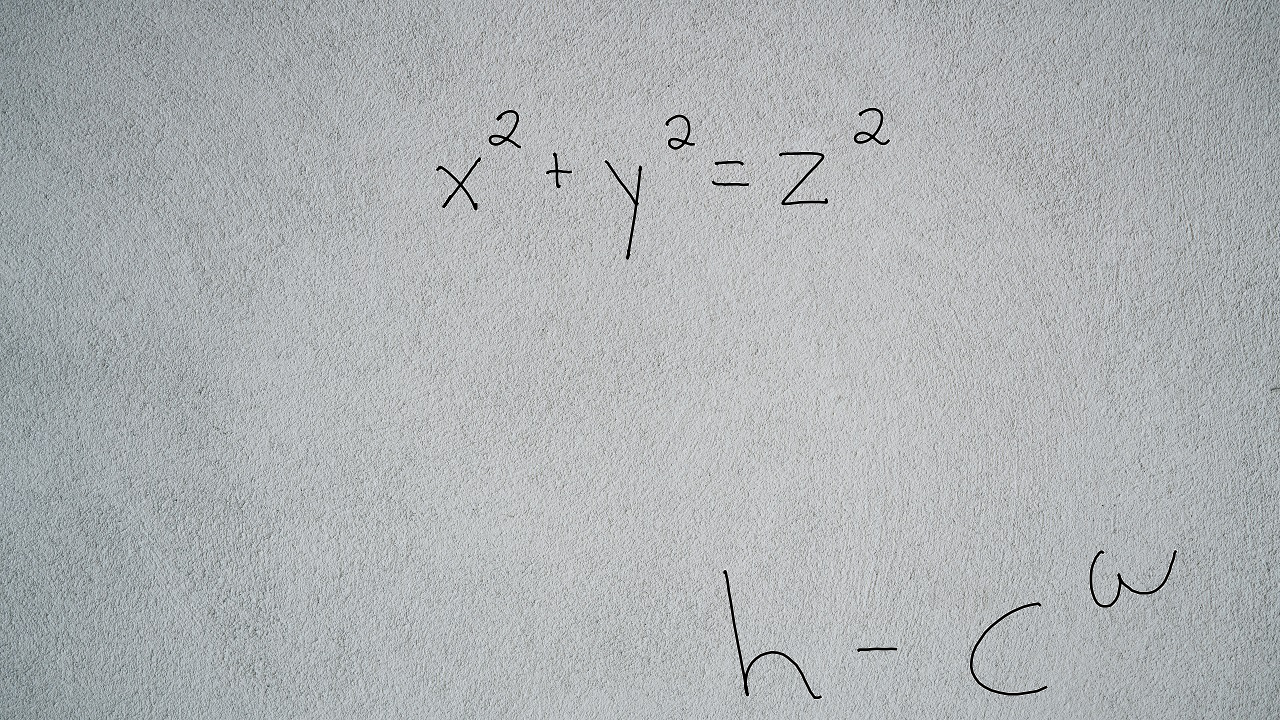 x² + y² = z²
h - c^ω